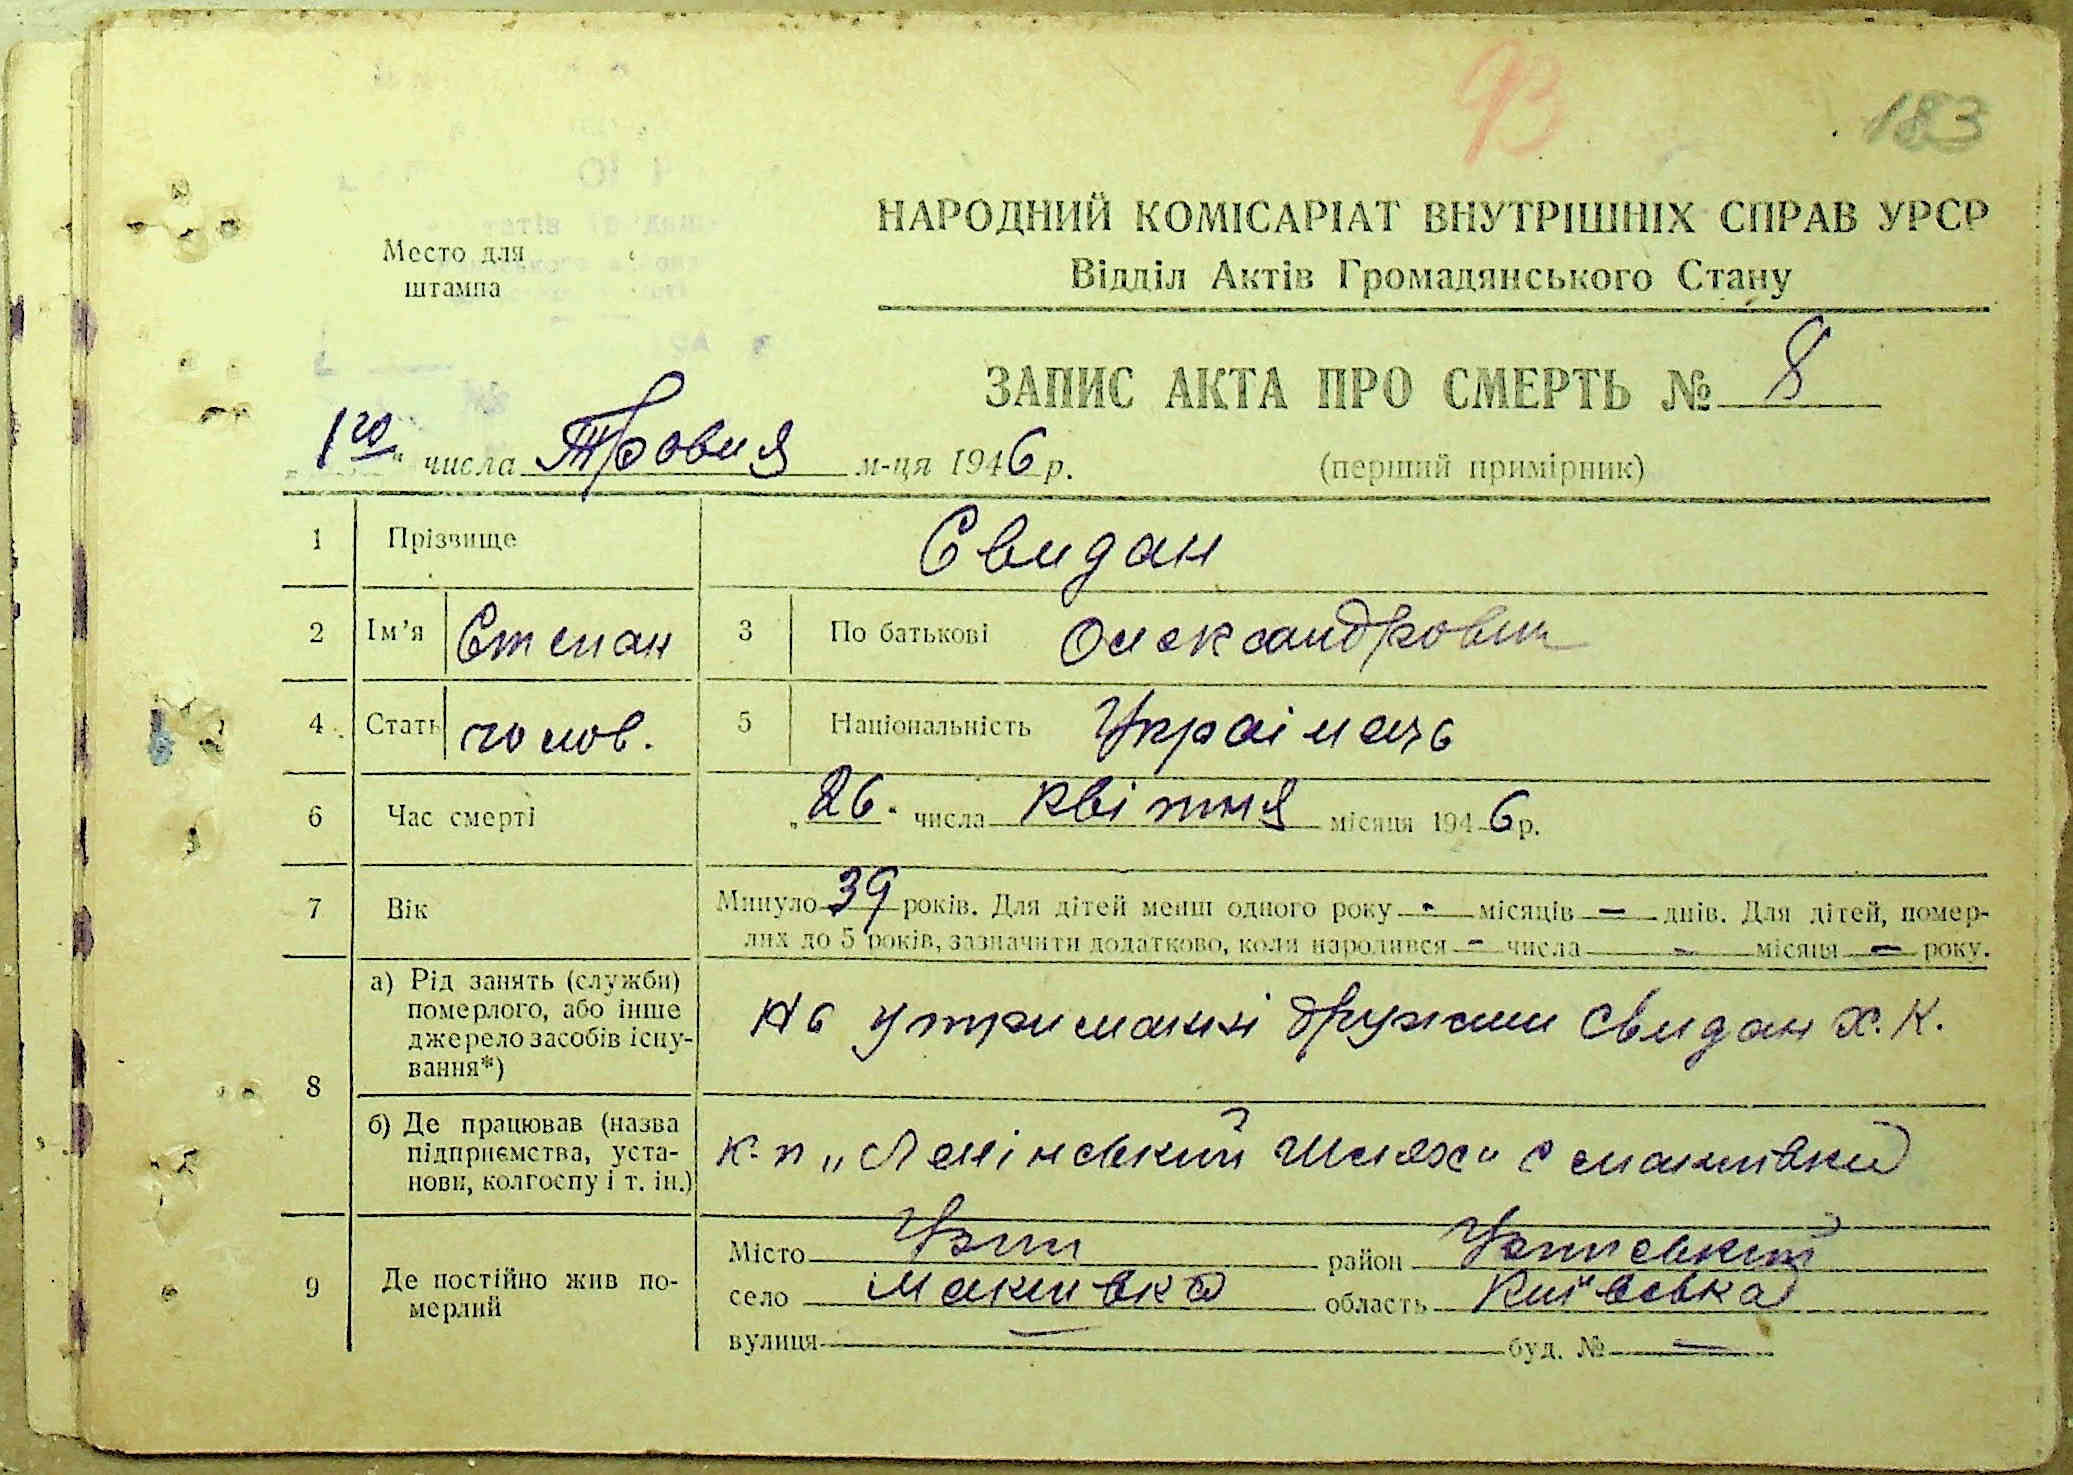 93
183
НАРОДНИЙ КОМІСАРІАТ ВНУТРІШНІХ СПРАВ УРСР
Відділ Актів Громадянського Стану
Место для
штампа
ЗАПИС АКТА ПРО СМЕРТЬ № 8
(перший примірник)
„1го“ числа Травня м-ця 1946 р.
1 Прізвище Свидан
2 Ім’я Степан 3 По батькові Олександрович
4 Стать чолов. 5 Національність Українець
6 Час смерті „26“ числа квітня місяця 1946 р.
7 Вік Минуло 39 років. Для дітей менш одного року - місяців - днів. Для дітей, помер-
лих до 5 років, зазначити додатково, коли народився - числа - місяця - року.
8 а) Рід занять (служби)
померлого, або інше
джерело засобів існу-
вання*)
На утриманні дружини Свидан Х. К.
б) Де працював (назва
підприємства, уста-
нови, колгоспу і т. ін.)
к-п „Ленінський Шлях“ с
9 Де постійно жив по-
мерлий
Місто район
село область Київська
вулиця — буд. № —